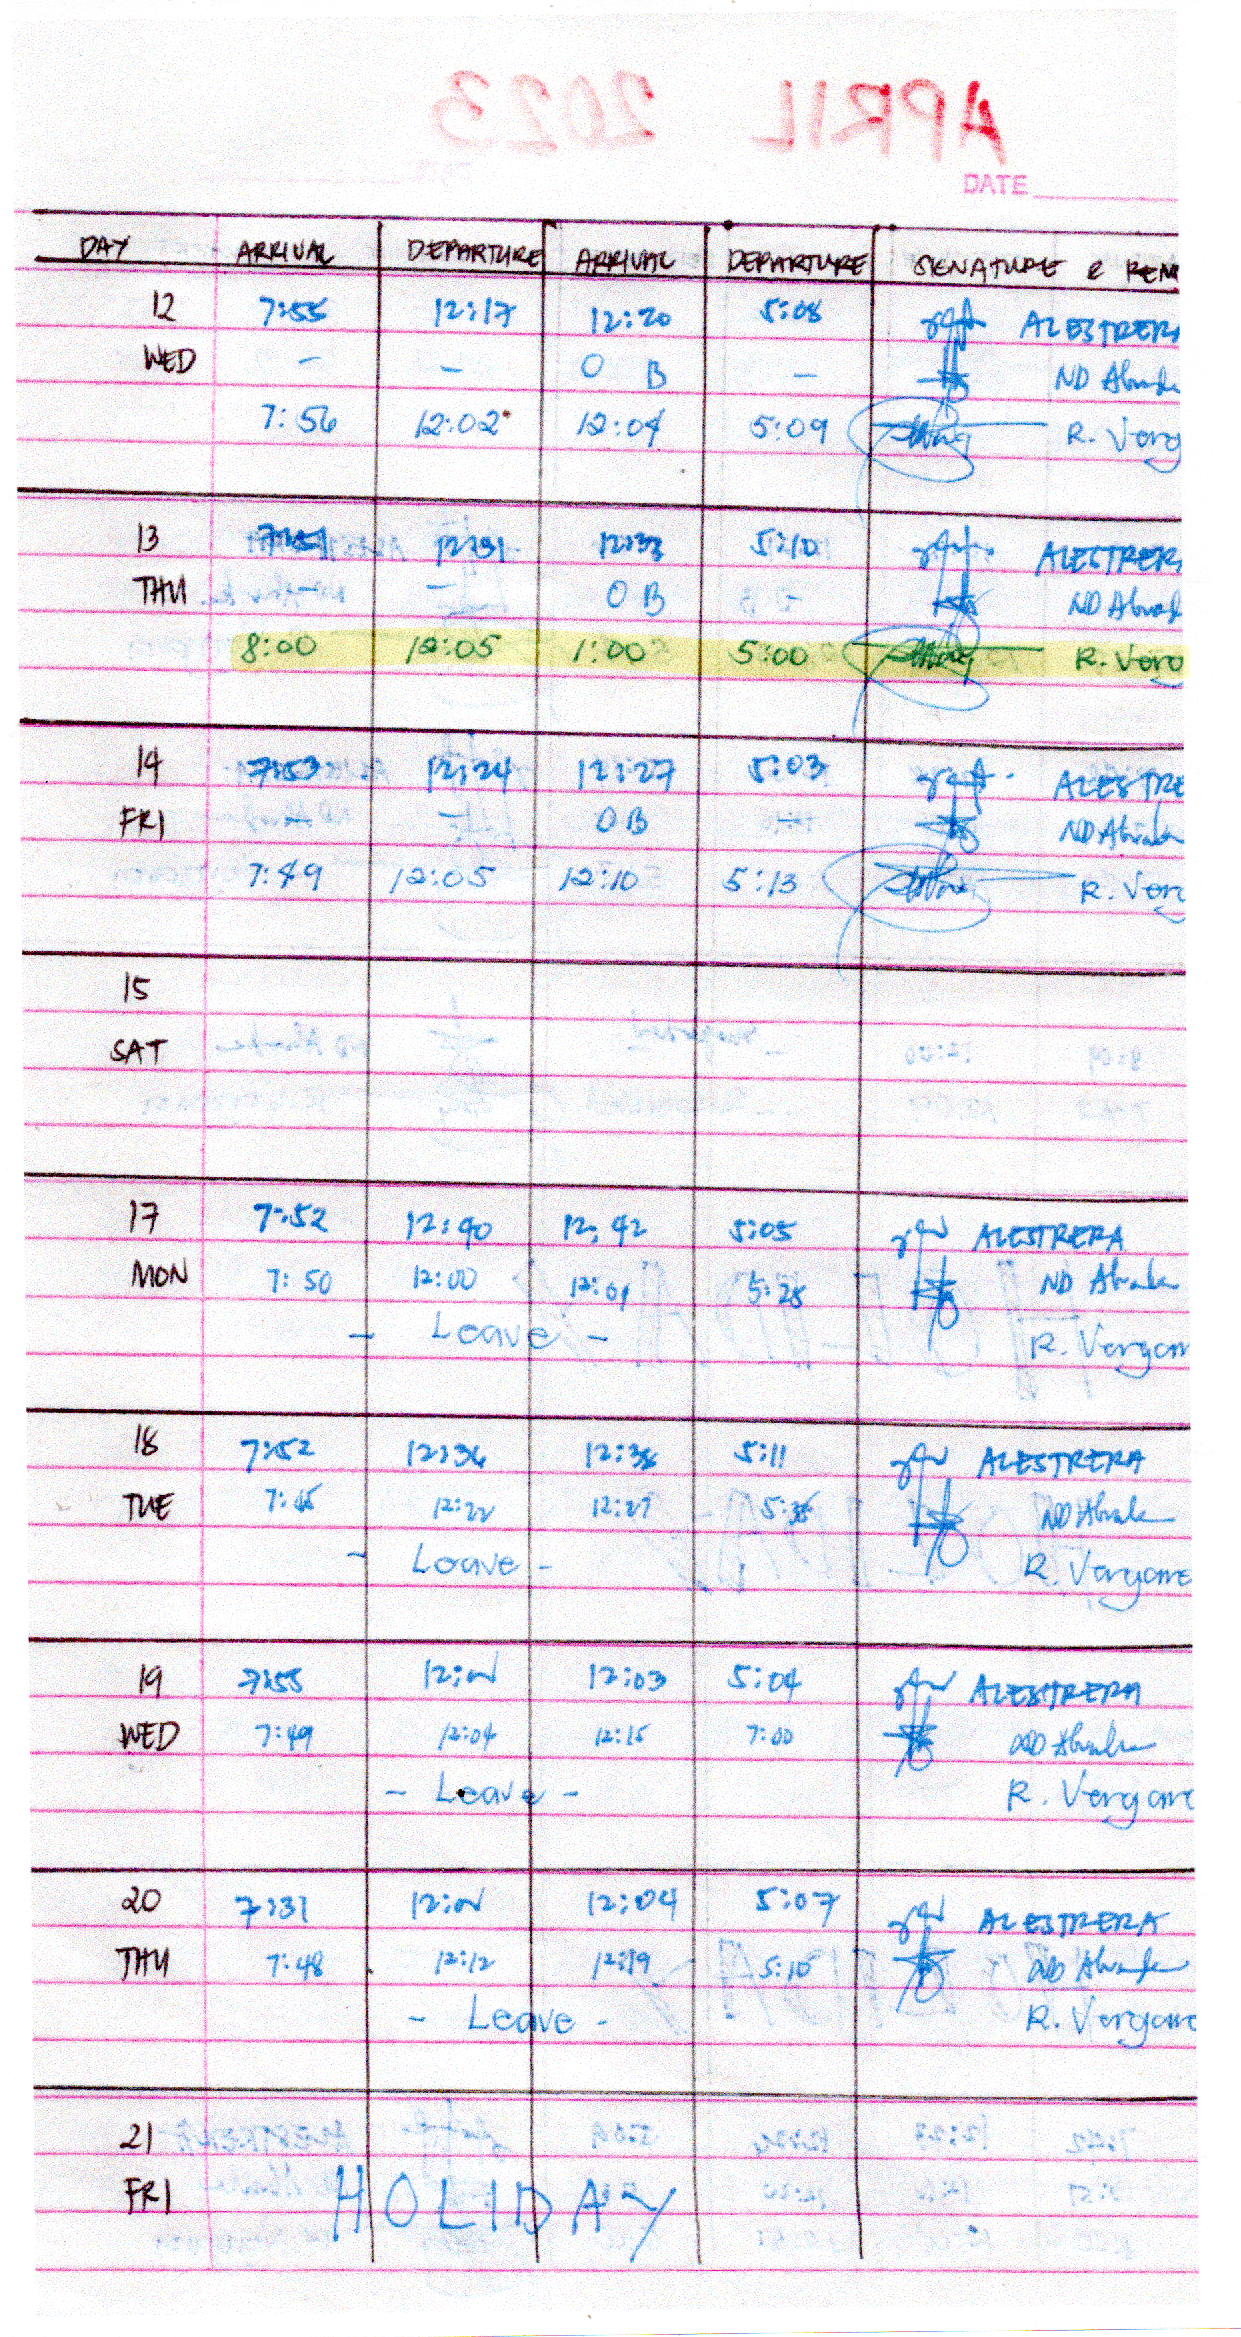 APRIL 2023
DATE
DAY ARRIVAL DEPARTURE ARRIVAL DEPARTURE SIGNATURE & REM
12 7:55 12:17 12:20 5:08 ALESTRERA
WED - - O B - ND
7:56 12:02 12:04 5:09 R. Verg
13 12:31 12:33 5:10 ALESTRERA
THU - O B ND
8:00 12:05 1:00 5:00 R. Verg
14 7:53 12:24 12:27 5:03 ALESTRE
FRI - OB ND
7:49 12:05 12:10 5:13 R. Ver
15
SAT
17 7:52 12:40 12:42 5:05 ALESTRERA
MON 7:50 12:00 12:01 5:28 ND
- Leave - R. Vergar
18 7:52 12:36 12:38 5:11 ALESTRERA
TUE 7:45 12:22 12:27 ND
- Leave - R. Vergara
19 7:55 12:03 5:04 ALESTRERA
WED 7:49 12:04 12:15 7:00 ND
- Leave - R. Vergara
20 7:31 12:04 5:07 ALESTRERA
THU 7:48 12:12 12:19 5:10 ND
- Leave - R. Vergara
21
FRI HOLIDAY